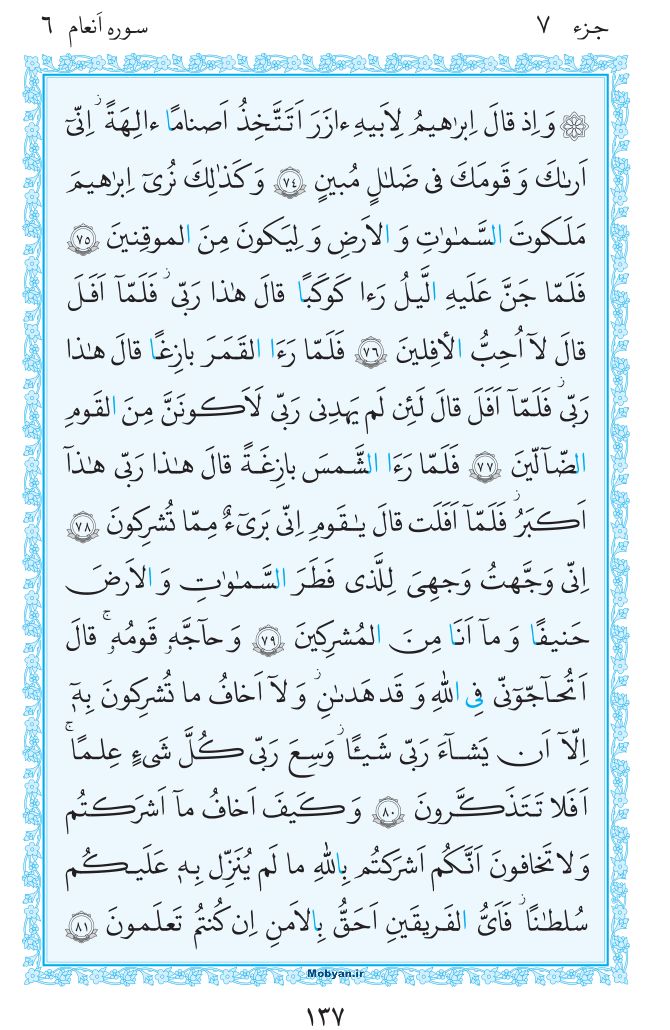 جزء ٧ سوره اَنعام ٦
وَ اِذ قالَ اِبرٰهيمُ لِاَبيهِ ءازَرَ اَتَتَّخِذُ اَصنامًا ءالِهَةً ۖ اِنّىٓ
اَرىٰكَ وَ قَومَكَ فى ضَلٰلٍ مُبينٍ ﴿٧٤﴾ وَ كَذٰلِكَ نُرىٓ اِبرٰهيمَ
مَلَكوتَ السَّمٰوٰتِ وَ الاَرضِ وَ لِيَكونَ مِنَ الموقِنينَ ﴿٧٥﴾
فَلَمّا جَنَّ عَلَيهِ الَّيلُ رَءا كَوكَبًا قالَ هٰذا رَبّى ۖ فَلَمّآ اَفَلَ
قالَ لآ اُحِبُّ الأفِلينَ ﴿٧٦﴾ فَلَمّا رَءَا القَمَرَ بازِغًا قالَ هٰذا
رَبّى ۖ فَلَمّآ اَفَلَ قالَ لَئِن لَم يَهدِنى رَبّى لَاَكونَنَّ مِنَ القَومِ
الضّآلّينَ ﴿٧٧﴾ فَلَمّا رَءَا الشَّمسَ بازِغَةً قالَ هٰذا رَبّى هٰذآ
اَكبَرُ ۖ فَلَمّآ اَفَلَت قالَ يٰقَومِ اِنّى بَرىءٌ مِمّا تُشرِكونَ ﴿٧٨﴾
اِنّى وَجَّهتُ وَجهِىَ لِلَّذى فَطَرَ السَّمٰوٰتِ وَ الاَرضَ
حَنيفًا وَ مآ اَنَا مِنَ المُشرِكينَ ﴿٧٩﴾ وَ حآجَّهٗ قَومُهٗ ۚ قالَ
اَتُحآجّوٓنّى فِى اللّٰهِ وَ قَد هَدىٰنِ ۖ وَ لآ اَخافُ ما تُشرِكونَ بِهٖٓ
اِلّآ اَن يَشآءَ رَبّى شَيـًٔا ۖ وَسِعَ رَبّى كُلَّ شَىءٍ عِلمًا ۚ
اَفَلا تَتَذَكَّرونَ ﴿٨٠﴾ وَ كَيفَ اَخافُ مآ اَشرَكتُم
وَلا تَخافونَ اَنَّكُم اَشرَكتُم بِاللّٰهِ ما لَم يُنَزِّل بِهٖ عَلَيكُم
سُلطٰنًا ۖ فَاَىُّ الفَريقَينِ اَحَقُّ بِالاَمنِ اِن كُنتُم تَعلَمونَ ﴿٨١﴾
Mobyan.ir
١٣٧